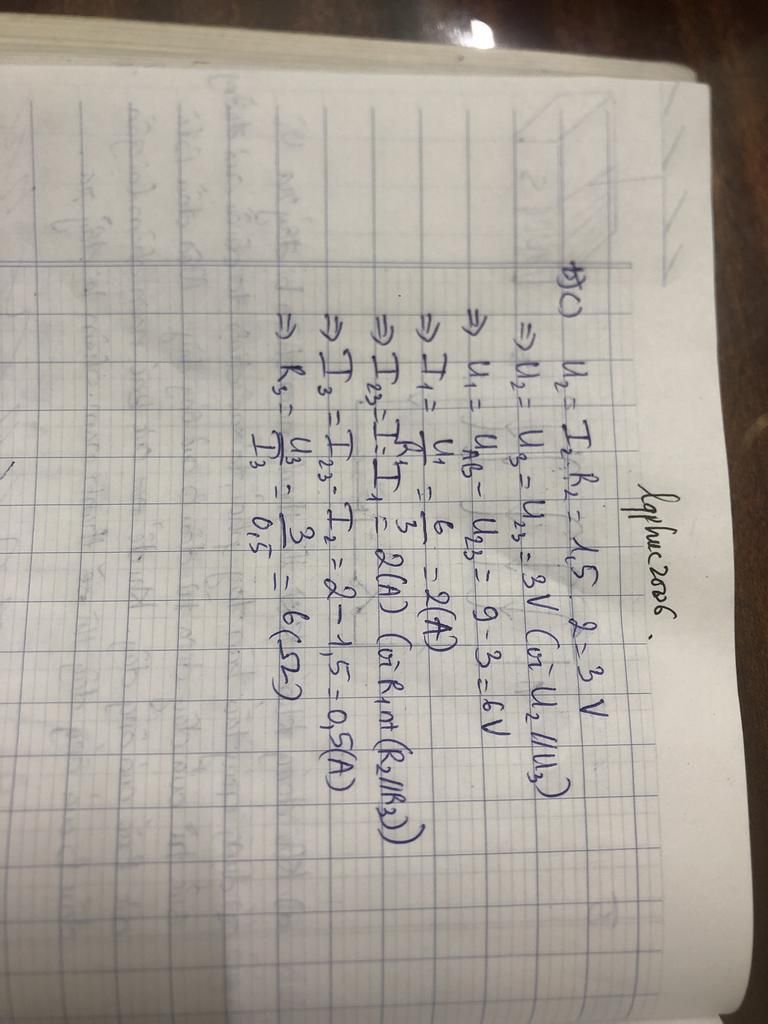 lqphuc2006.
c) U₂ = I₂.R₂ = 1,5 . 2 = 3 V
⇒ U₂ = U₃ = U₂₃ = 3V (vì U₂ // U₃)
⇒ U₁ = U_AB - U₂₃ = 9 - 3 = 6V
⇒ I₁ = U₁/R₁ = 6/3 = 2(A)
⇒ I₂₃ = I = I₁ = 2(A) (vì R₁ nt (R₂//R₃))
⇒ I₃ = I₂₃ - I₂ = 2 - 1,5 = 0,5(A)
⇒ R₃ = U₃/I₃ = 3/0,5 = 6(Ω)